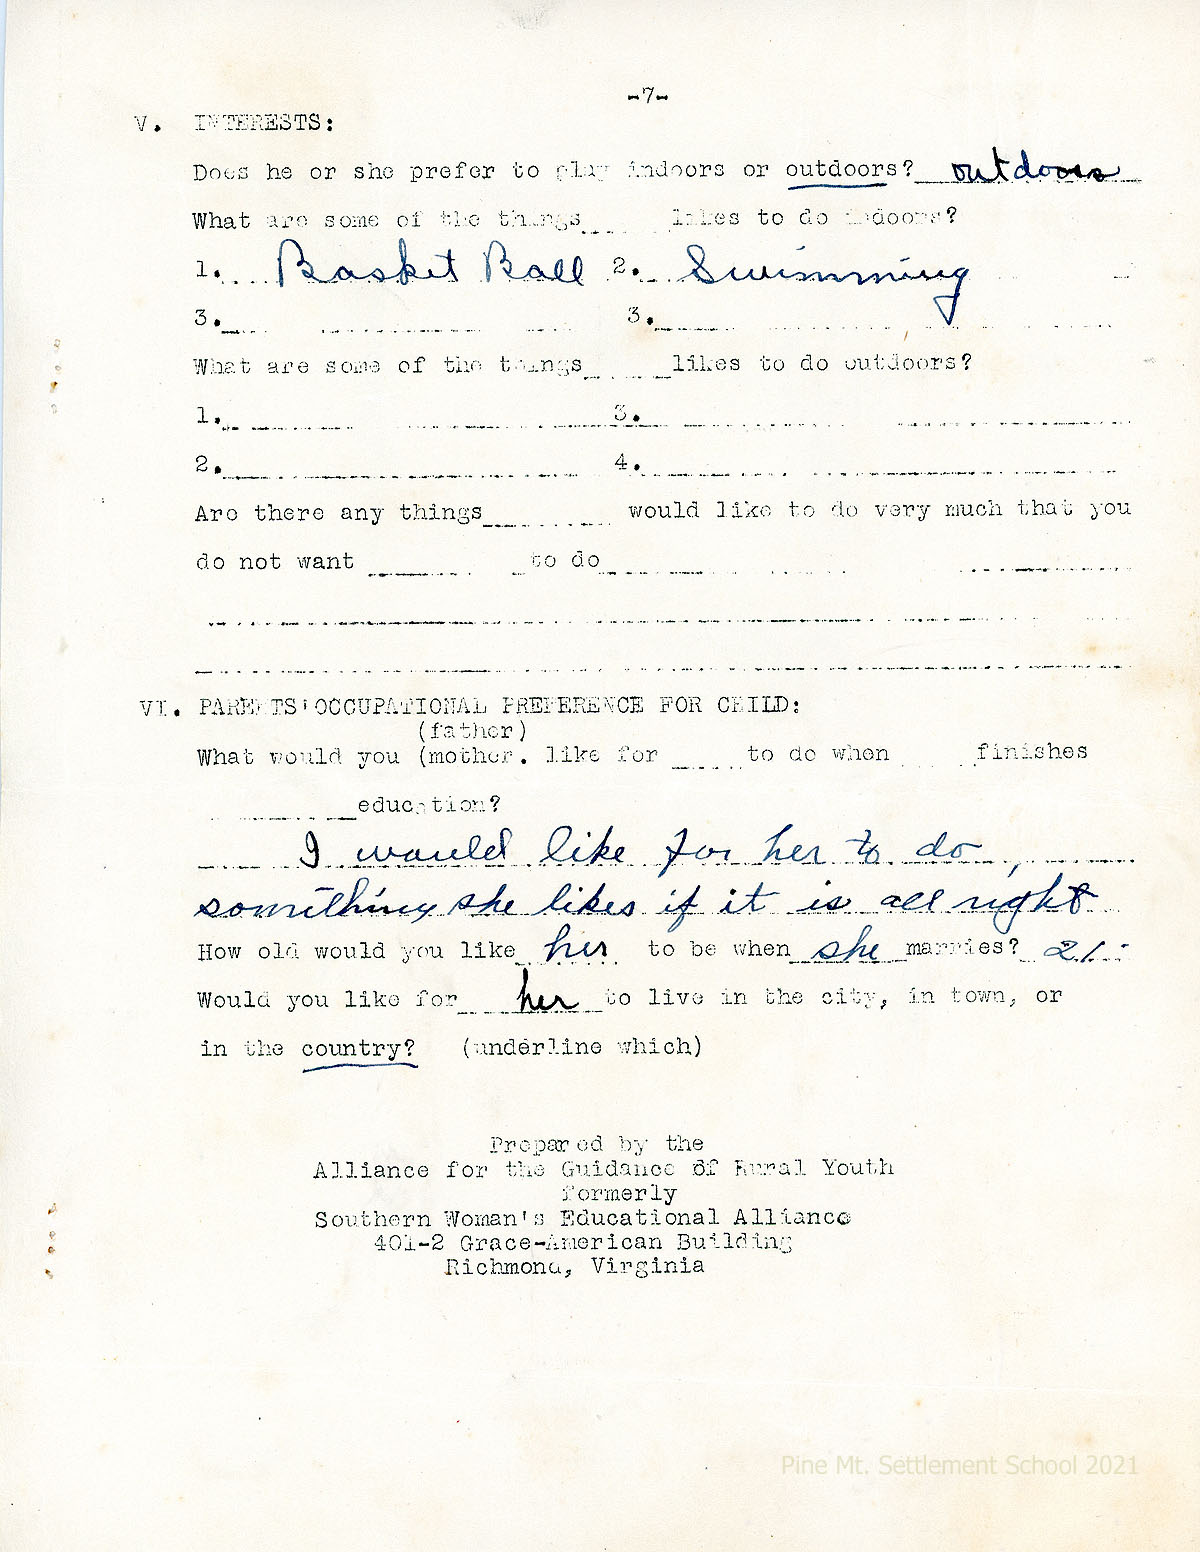 -7-
V. INTERESTS:
Does he or she prefer to play indoors or outdoors? outdoors
What are some of the things likes to do indoors?
1. Basket Ball 2. Swimming
3. 3.
What are some of the things likes to do outdoors?
1. 3.
2. 4.
Are there any things would like to do very much that you
do not want to do
VI. PARENTS' OCCUPATIONAL PREFERENCE FOR CHILD:
(father)
What would you (mother. like for to do when finishes
education?
I would like for her to do,
something she likes if it is all right
How old would you like her to be when she marries? 21-
Would you like for her to live in the city, in town, or
in the country? (underline which)
Prepared by the
Alliance for the Guidance of Rural Youth
formerly
Southern Woman's Educational Alliance
401-2 Grace-American Building
Richmond, Virginia
Pine Mt. Settlement School 2021